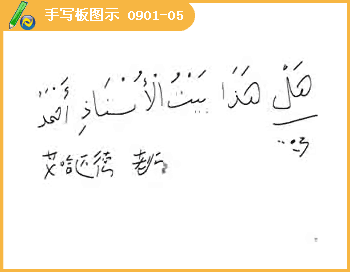 手写板图示 0901-05
هَلْ هَذَا بَيْتُ الْأُسْتَاذِ أَحْمَدَ
艾哈迈德 老师